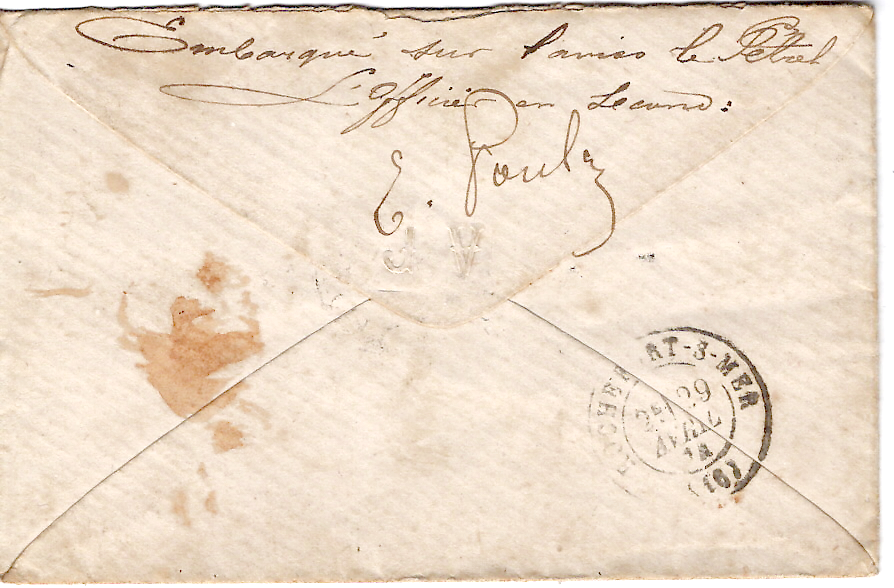 Embarqué sur l'aviso le Pétrel
L'officier en second:
E. Pouly
ROCHEFORT-S-MER
2E 29
AVRIL
74
(16)